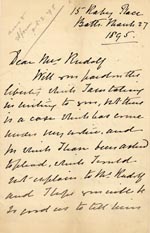 15 Raby Place
Bath March 27
1895.
Dear Mr Rudolf
Will you pardon the
liberty which I am taking
in writing to you, but there
is a case which has come
under my notice, and
in which I have been asked
to plead, which I would
not explain to Mr Rudolf
and I hope you will be
so good as to tell him